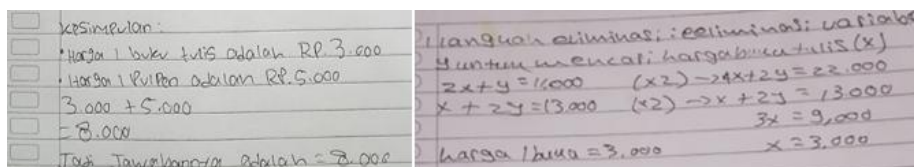 Kesimpulan:
• Harga 1 buku tulis adalah RP. 3.000
• Harga 1 Pulpen adalah RP. 5.000
3.000 + 5.000
= 8.000
Jadi Jawabannya adalah = 8.000
Langkah eliminasi: eeliminasi variabel
y untuk mencari harga buku tulis (x)
2x + y = 11.000 (x2) → 4x + 2y = 22.000
x + 2y = 13.000 (x2) → x + 2y = 13.000
3x = 9,000
harga 1 buku = 3.000 x = 3.000